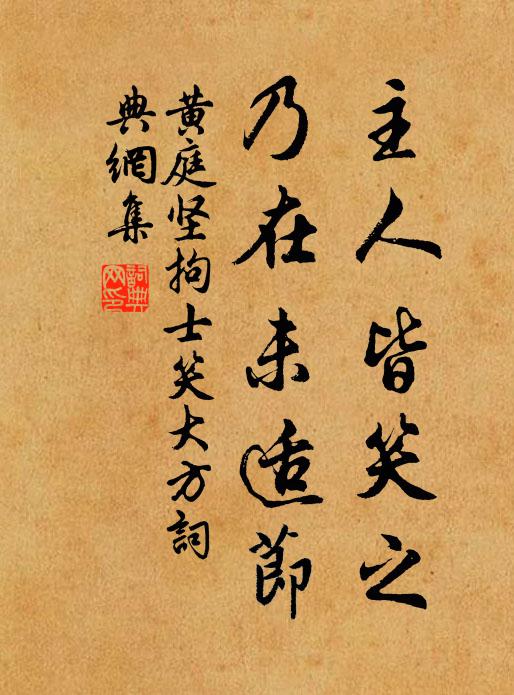 主人皆笑之
乃在未适節
黄庭坚拘士笑大方詞
典網集
詞典網印